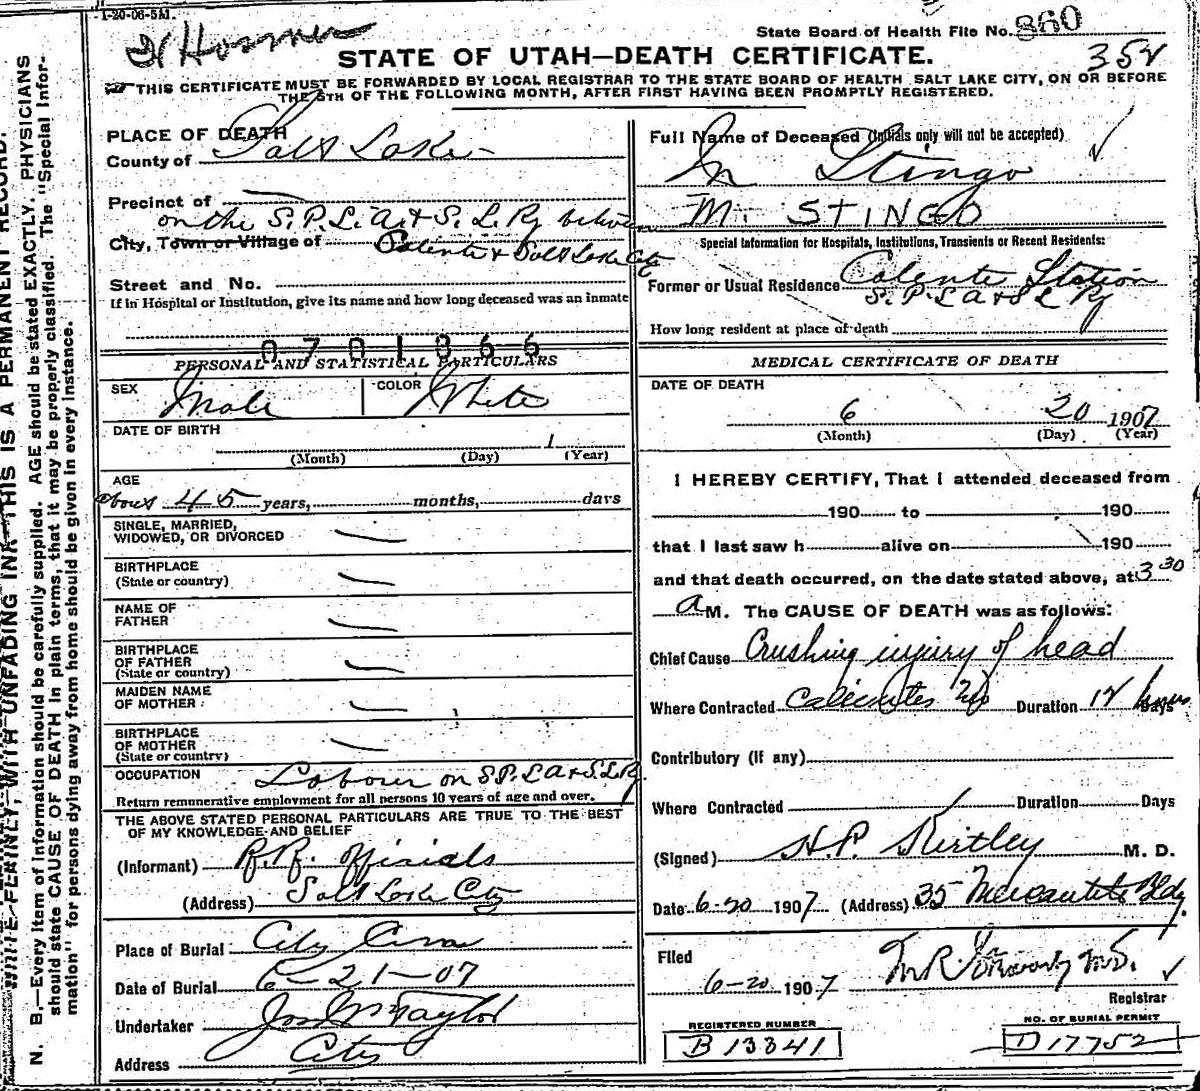 1-20-06-5M.
State Board of Health File No. 860
354
STATE OF UTAH—DEATH CERTIFICATE.
THIS CERTIFICATE MUST BE FORWARDED BY LOCAL REGISTRAR TO THE STATE BOARD OF HEALTH SALT LAKE CITY, ON OR BEFORE
THE 5TH OF THE FOLLOWING MONTH, AFTER FIRST HAVING BEEN PROMPTLY REGISTERED.
PLACE OF DEATH
County of Salt Lake
Precinct of
on the S. P. L. A. & S. L. Ry between
City, Town or Village of Calente & Salt Lake City
Street and No.
If in Hospital or Institution, give its name and how long deceased was an inmate
0701366
PERSONAL AND STATISTICAL PARTICULARS
SEX Male COLOR White
DATE OF BIRTH 1
(Month) (Day) (Year)
AGE
about 45 years, months, days
SINGLE, MARRIED,
WIDOWED, OR DIVORCED
BIRTHPLACE
(State or country)
NAME OF
FATHER
BIRTHPLACE
OF FATHER
(State or country)
MAIDEN NAME
OF MOTHER
BIRTHPLACE
OF MOTHER
(State or country)
OCCUPATION Labour on S.P. L A & S. L Ry.
Return remunerative employment for all persons 10 years of age and over.
THE ABOVE STATED PERSONAL PARTICULARS ARE TRUE TO THE BEST
OF MY KNOWLEDGE AND BELIEF
(Informant) R. R. officials
(Address) Salt Lake City
Place of Burial City
Date of Burial 6-21-07
Undertaker Jos Wm Taylor
Address City
Full Name of Deceased (Initials only will not be accepted)
M Stingo
M. STINGO
Special Information for Hospitals, Institutions, Transients or Recent Residents:
Former or Usual Residence Calente Station
S. P. L A & S L Ry
How long resident at place of death
MEDICAL CERTIFICATE OF DEATH
DATE OF DEATH
6 20 1907
(Month) (Day) (Year)
I HEREBY CERTIFY, That I attended deceased from
190 to 190
that I last saw h alive on 190
and that death occurred, on the date stated above, at 3 30
a M. The CAUSE OF DEATH was as follows:
Chief Cause Crushing injury of head
Where Contracted Duration 12 hours Days
Contributory (if any)
Where Contracted Duration Days
(Signed) H. P. Kirtley M. D.
Date 6-20 1907 (Address) 35 Mercantile Bldg.
Filed
6-20 1907 M.D.
Registrar
REGISTERED NUMBER
B 13341
NO. OF BURIAL PERMIT
D 17752
WRITE PLAINLY, WITH UNFADING INK—THIS IS A PERMANENT RECORD.
N. B.—Every item of information should be carefully supplied. AGE should be stated EXACTLY. PHYSICIANS
should state CAUSE OF DEATH in plain terms, that it may be properly classified. The "Special Infor-
mation" for persons dying away from home should be given in every instance.